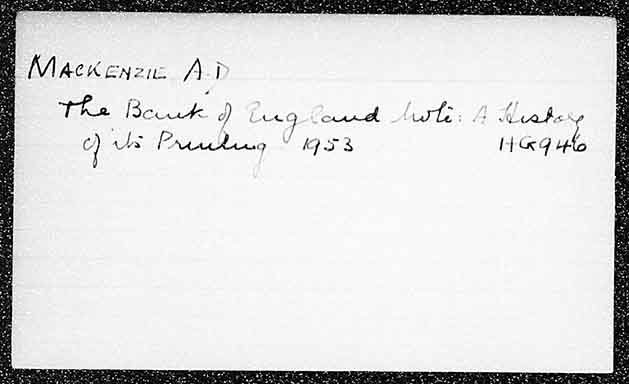 MACKENZIE A.D
The Bank of England Note: A History
of its Printing 1953 HG946